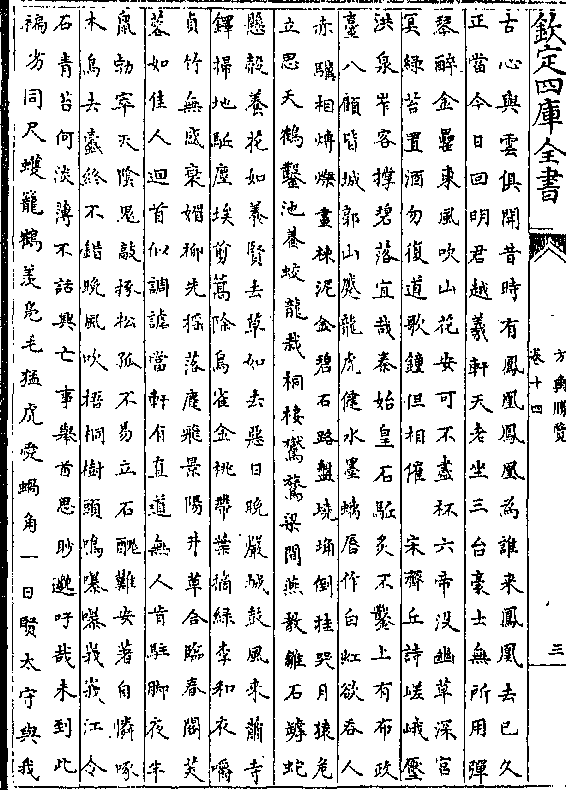 欽定四庫全書
方輿勝覽
卷十四
三
古心與雲俱開昔時有鳳凰鳳凰為誰来鳳凰去已久
正當今日回明君越羲軒天老坐三台豪士無所用彈
琴醉金罍東風吹山花安可不盡杯六帝沒幽草深宫
冥綠苔置酒勿復道歌鐘但相催 宋齊丘詩嵯峨壓
洪泉岝客撑碧落宜哉秦始皇石驅炙不鑿上有布政
臺八顧皆城郭山蹙龍虎健水墨螭唇作白虹欲吞人
赤驥相煿爍畫棟泥金碧石路盤墝埆倒挂哭月猿危
立思天鶴鑿池養蛟龍栽桐棲鸑鷟梁間燕敎雛石罅蛇
懸殼養花如養賢去草如去惡日晚嚴城鼓風來蕭寺
鐸掃地驅塵埃剪蒿除鳥雀金桃帶葉摘綠李和衣嚼
貞竹無盛衰媚柳先揺落塵飛景陽井草合臨春閣芙
蓉如佳人迴首似調謔當軒有直道無人肯駐脚夜半
鼠勃窣天陰鬼敲㧻松孤不易立石醜難安著自憐啄
木鳥去蠧終不錯晚風吹梧桐樹頭鳴嚗嚗峩峩江令
石青苔何淡薄不話興亡事舉首思眇邈吁哉未到此
褊劣同尺蠖籠鶴羨鳬毛猛虎愛蝸角一日賢太守與我